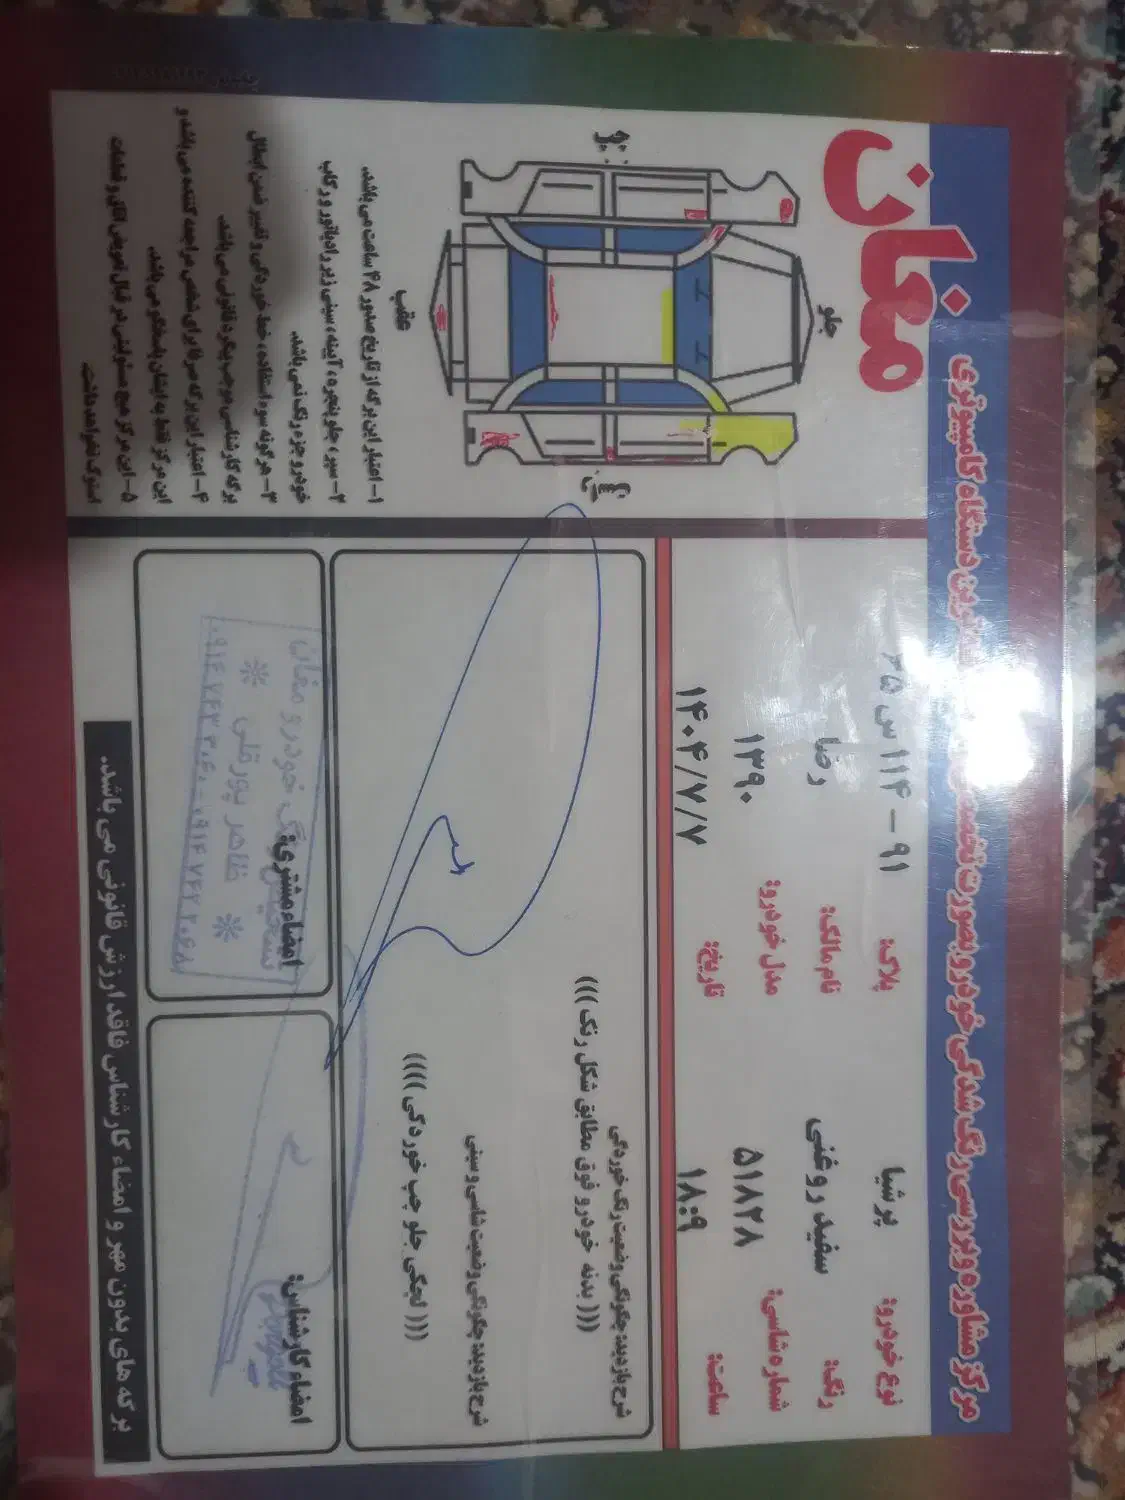 مغان
مرکز مشاوره و بررسی رنگ شدگی خودرو بصورت تخصصی
دستگاه کامپیوتری
نوع خودرو: پرشیا
پلاک: ۹۱ - ۱۱۴ س ۳۵
رنگ: سفید روغنی
نام مالک: رضا
شماره شاسی: ۵۱۸۲۸
مدل خودرو: ۱۳۹۰
ساعت: ۱۸:۹
تاریخ: ۱۴۰۴/۷/۷
شرح بازدید: چگونگی وضعیت رنگ خوردگی
((( بدنه خودرو فوق مطابق شکل رنگ )))
شرح بازدید: چگونگی وضعیت شاسی و سینی
((( لچکی جلو چپ خوردگی ))))
امضاء کارشناس:
امضاء مشتری:
رنگ خودرو مغان
طاهر پورقلی
برگه های بدون مهر و امضاء کارشناس فاقد ارزش قانونی می باشد.
جلو
عقب
۱- اعتبار این برگه از تاریخ صدور ۴۸ ساعت می باشد.
۲- سپر، جلو پنجره، آیینه، سینی زیر رادیاتور و رکاب
خودرو جزء رنگ نمی باشد.
۳- هر گونه سوء استفاده، خط خوردگی و تغییر ضمن ابطال
برگه کارشناسی موجب پیگرد قانونی می باشد.
۴- اعتبار این برگه صرفا برای شخص مراجعه کننده می باشد و
این مرکز فقط به ایشان پاسخگو می باشد.
۵- این مرکز هیچ مسئولیتی در قبال تعویض اتاق و قطعات
استوک نخواهد داشت.